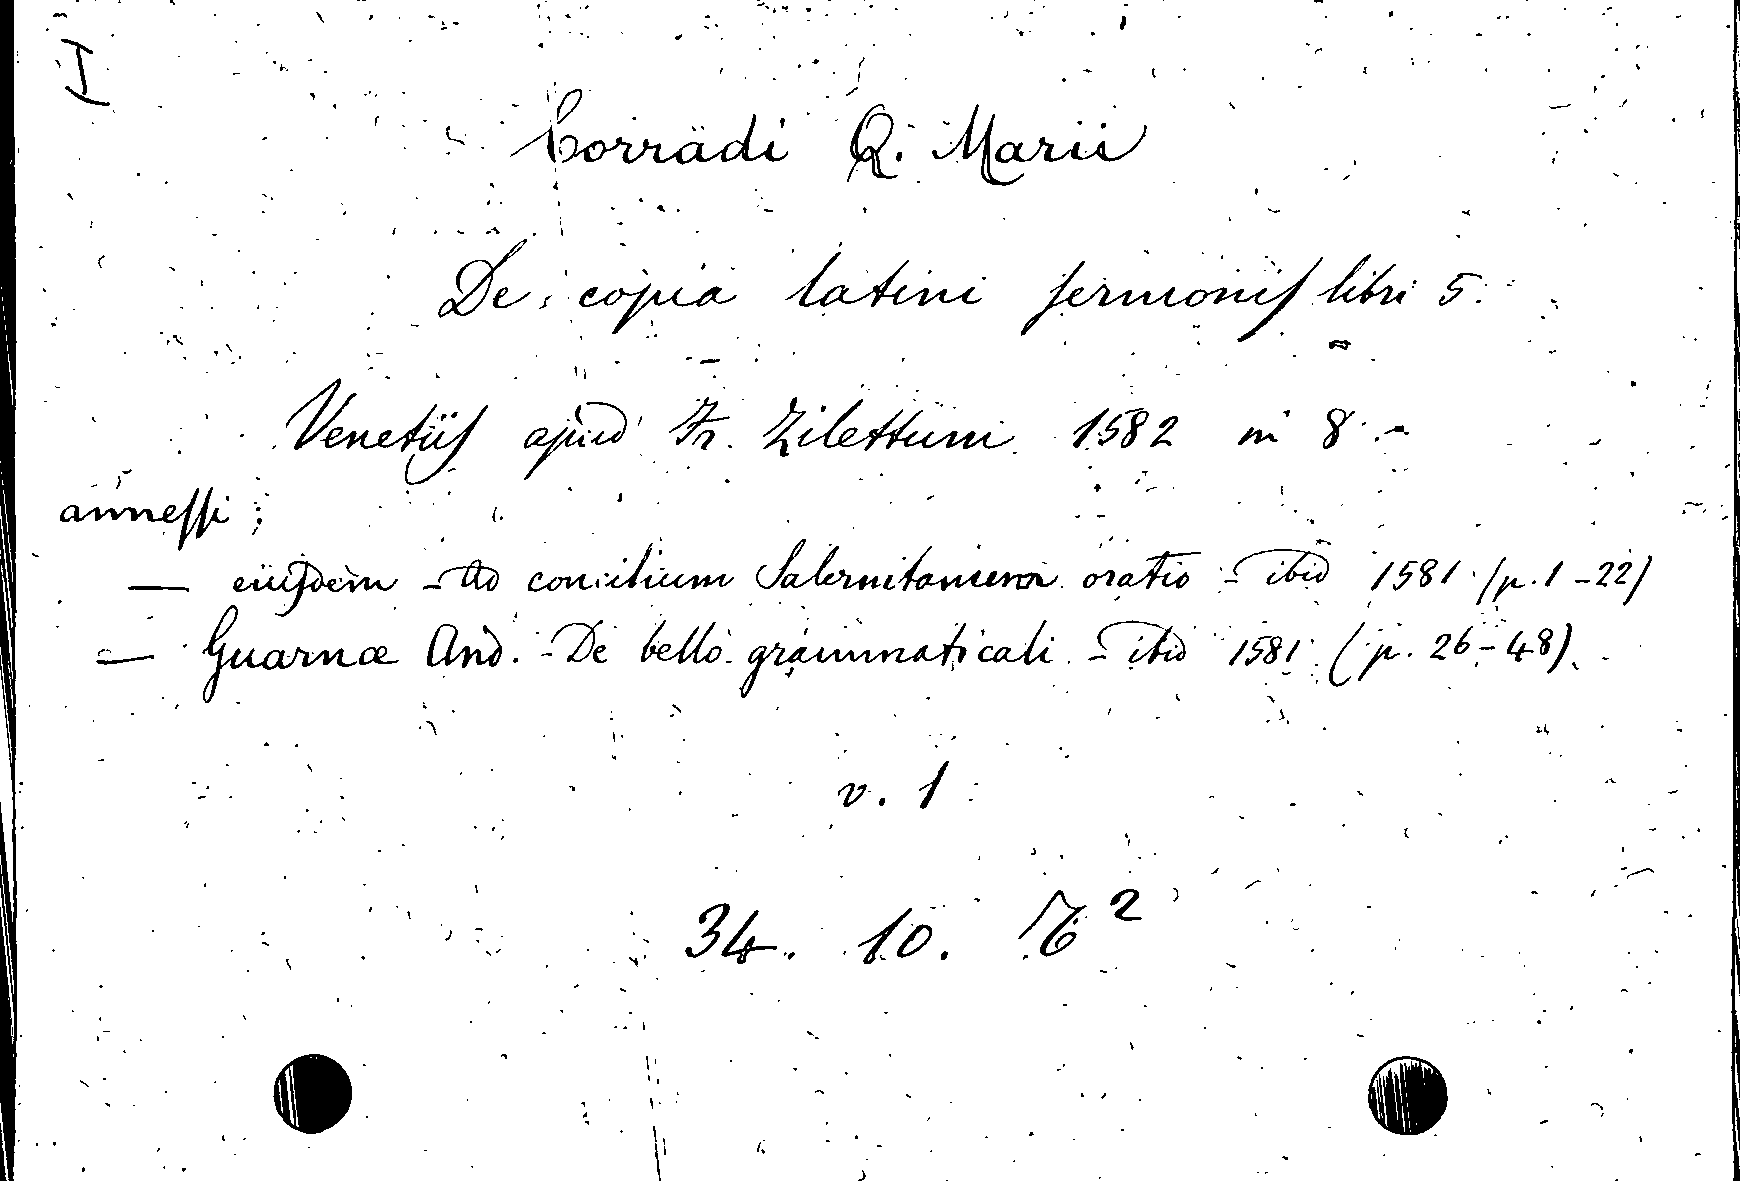 I
Corradi Q. Marii
De copia latini sermonis libri 5.
Venetiis apud Fr. Zilettum 1582 in 8.-
annessi:
— eiusdem - Ad concilium Salernitanum oratio - ibid 1581 (p. 1-22)
— Guarnæ And. - De bello grammaticali - ibid 1581 (p. 26-48).
v. 1
34. 10.